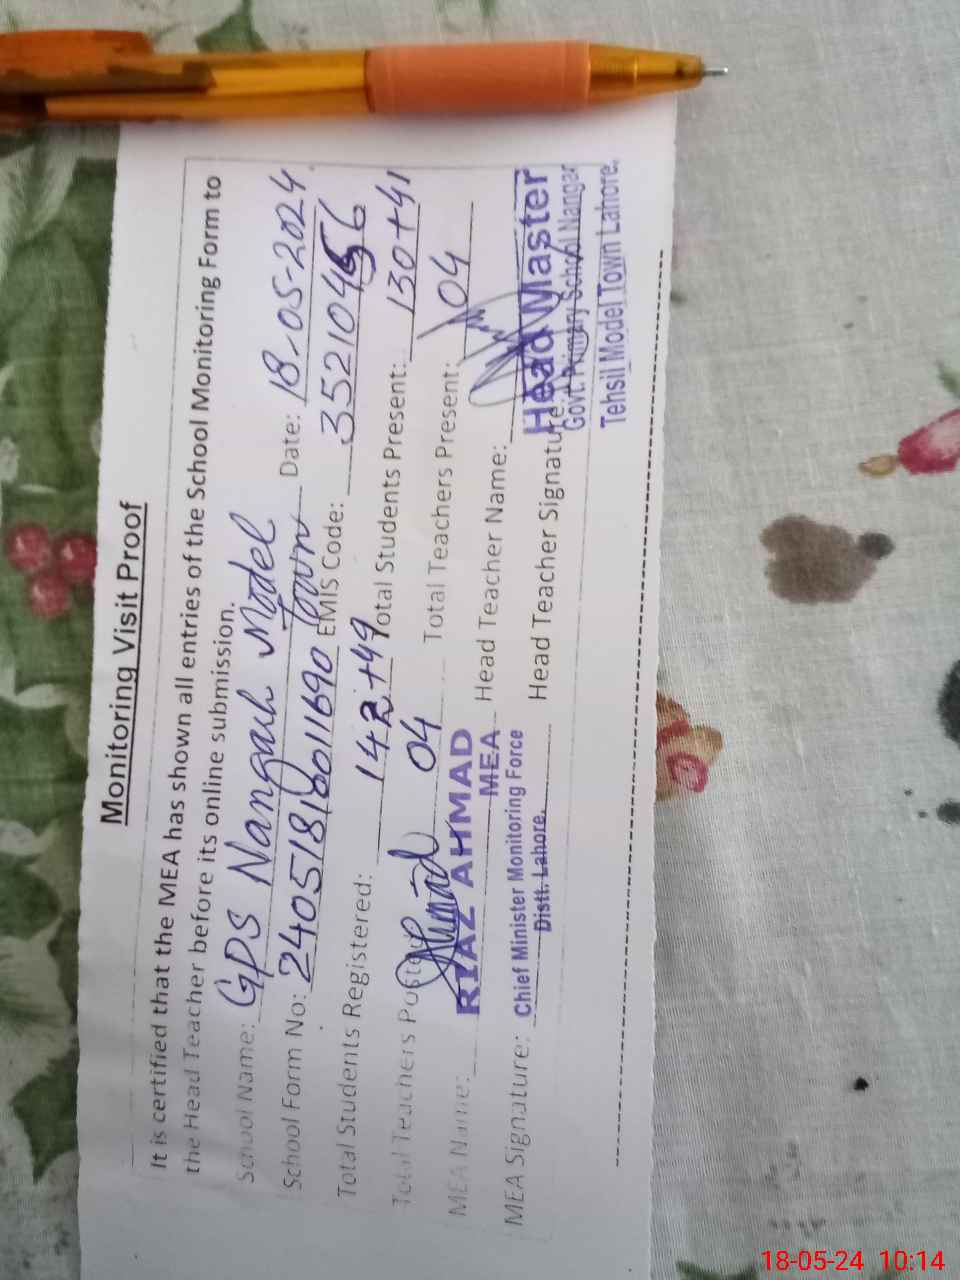 Monitoring Visit Proof
It is certified that the MEA has shown all entries of the School Monitoring Form to
the Head Teacher before its online submission.
School Name: GPS Nangash Model Town Date: 18-05-2024
School Form No: EMIS Code: 35210456
Total Students Registered: 142+49 Total Students Present: 130+41
Total Teachers Posted: 04 Total Teachers Present: 04
MEA Name: RIAZ AHMAD Head Teacher Name:
MEA
MEA Signature: Chief Minister Monitoring Force Head Teacher Signature:
Distt. Lahore.
Head Master
Govt. Primary School Nangar
Tehsil Model Town Lahore.
18-05-24 10:14